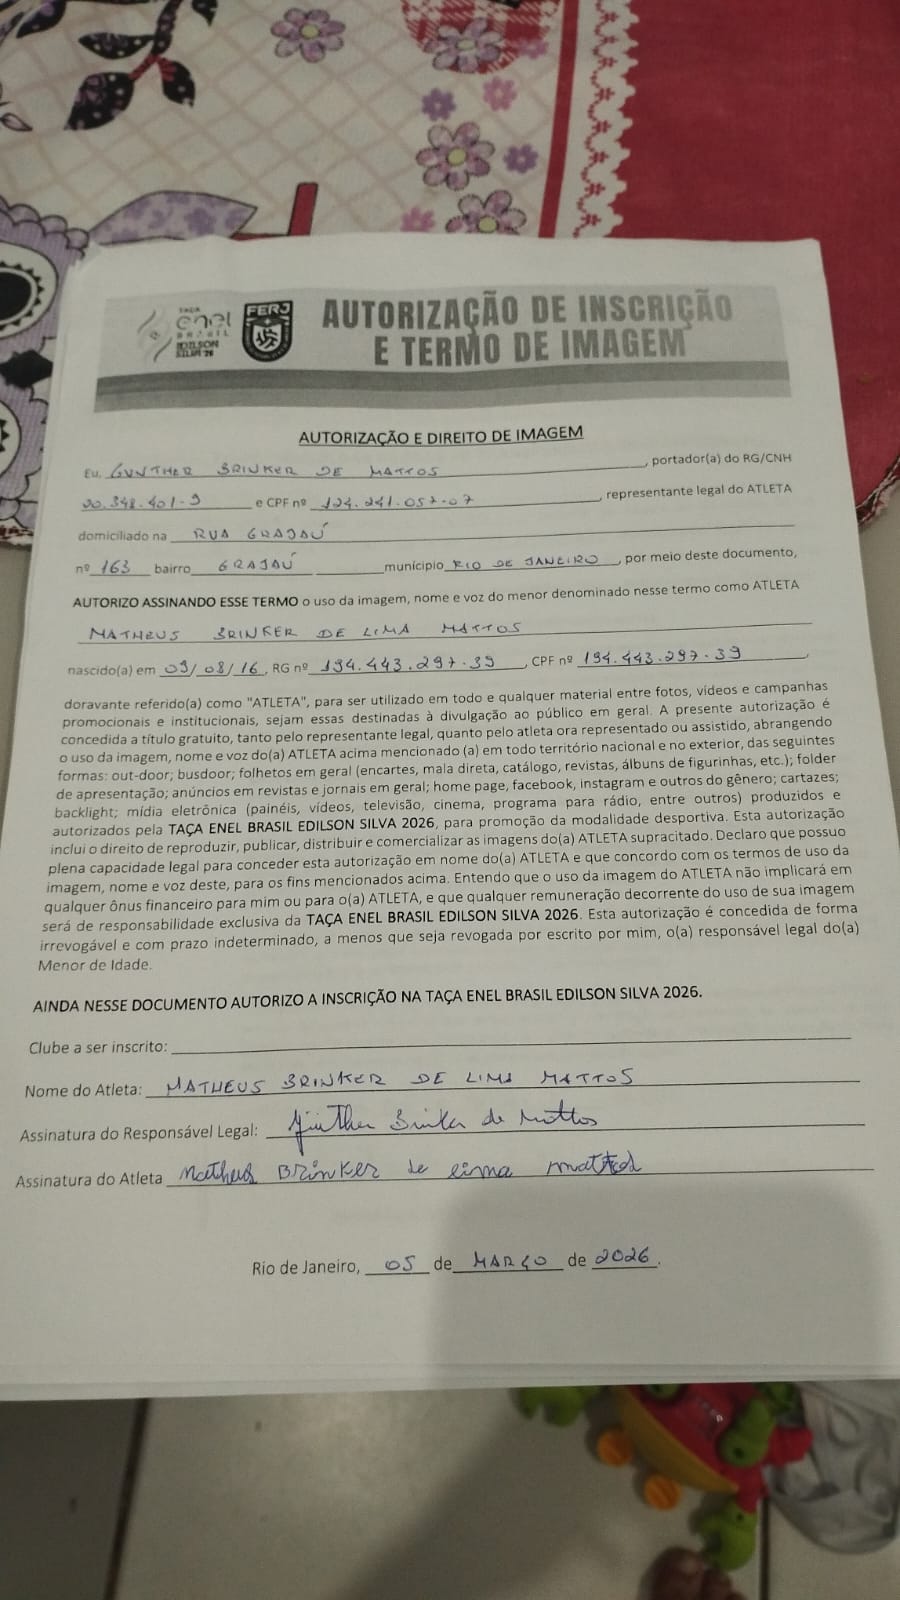 TAÇA
enel
BRASIL
EDILSON
SILVA '26
FERJ
AUTORIZAÇÃO DE INSCRIÇÃO
E TERMO DE IMAGEM
AUTORIZAÇÃO E DIREITO DE IMAGEM
Eu, GUNTHER BRINKER DE MATTOS, portador(a) do RG/CNH
20.348.401-9 e CPF nº 124.241.057-07, representante legal do ATLETA
domiciliado na RUA GRAJAÚ
nº 163 bairro GRAJAÚ município RIO DE JANEIRO, por meio deste documento,
AUTORIZO ASSINANDO ESSE TERMO o uso da imagem, nome e voz do menor denominado nesse termo como ATLETA
MATHEUS BRINKER DE LIMA MATTOS
nascido(a) em 09/08/16, RG nº 194.443.297-39, CPF nº 194.443.297-39,
doravante referido(a) como "ATLETA", para ser utilizado em todo e qualquer material entre fotos, vídeos e campanhas
promocionais e institucionais, sejam essas destinadas à divulgação ao público em geral. A presente autorização é
concedida a título gratuito, tanto pelo representante legal, quanto pelo atleta ora representado ou assistido, abrangendo
o uso da imagem, nome e voz do(a) ATLETA acima mencionado (a) em todo território nacional e no exterior, das seguintes
formas: out-door; busdoor; folhetos em geral (encartes, mala direta, catálogo, revistas, álbuns de figurinhas, etc.); folder
de apresentação; anúncios em revistas e jornais em geral; home page, facebook, instagram e outros do gênero; cartazes;
backlight; mídia eletrônica (painéis, vídeos, televisão, cinema, programa para rádio, entre outros) produzidos e
autorizados pela TAÇA ENEL BRASIL EDILSON SILVA 2026, para promoção da modalidade desportiva. Esta autorização
inclui o direito de reproduzir, publicar, distribuir e comercializar as imagens do(a) ATLETA supracitado. Declaro que possuo
plena capacidade legal para conceder esta autorização em nome do(a) ATLETA e que concordo com os termos de uso da
imagem, nome e voz deste, para os fins mencionados acima. Entendo que o uso da imagem do ATLETA não implicará em
qualquer ônus financeiro para mim ou para o(a) ATLETA, e que qualquer remuneração decorrente do uso de sua imagem
será de responsabilidade exclusiva da TAÇA ENEL BRASIL EDILSON SILVA 2026. Esta autorização é concedida de forma
irrevogável e com prazo indeterminado, a menos que seja revogada por escrito por mim, o(a) responsável legal do(a)
Menor de Idade.
AINDA NESSE DOCUMENTO AUTORIZO A INSCRIÇÃO NA TAÇA ENEL BRASIL EDILSON SILVA 2026.
Clube a ser inscrito:
Nome do Atleta: MATHEUS BRINKER DE LIMA MATTOS
Assinatura do Responsável Legal: Günther Brinker de Mattos
Assinatura do Atleta Matheus Brinker de Lima Mattos
Rio de Janeiro, 05 de MARÇO de 2026.